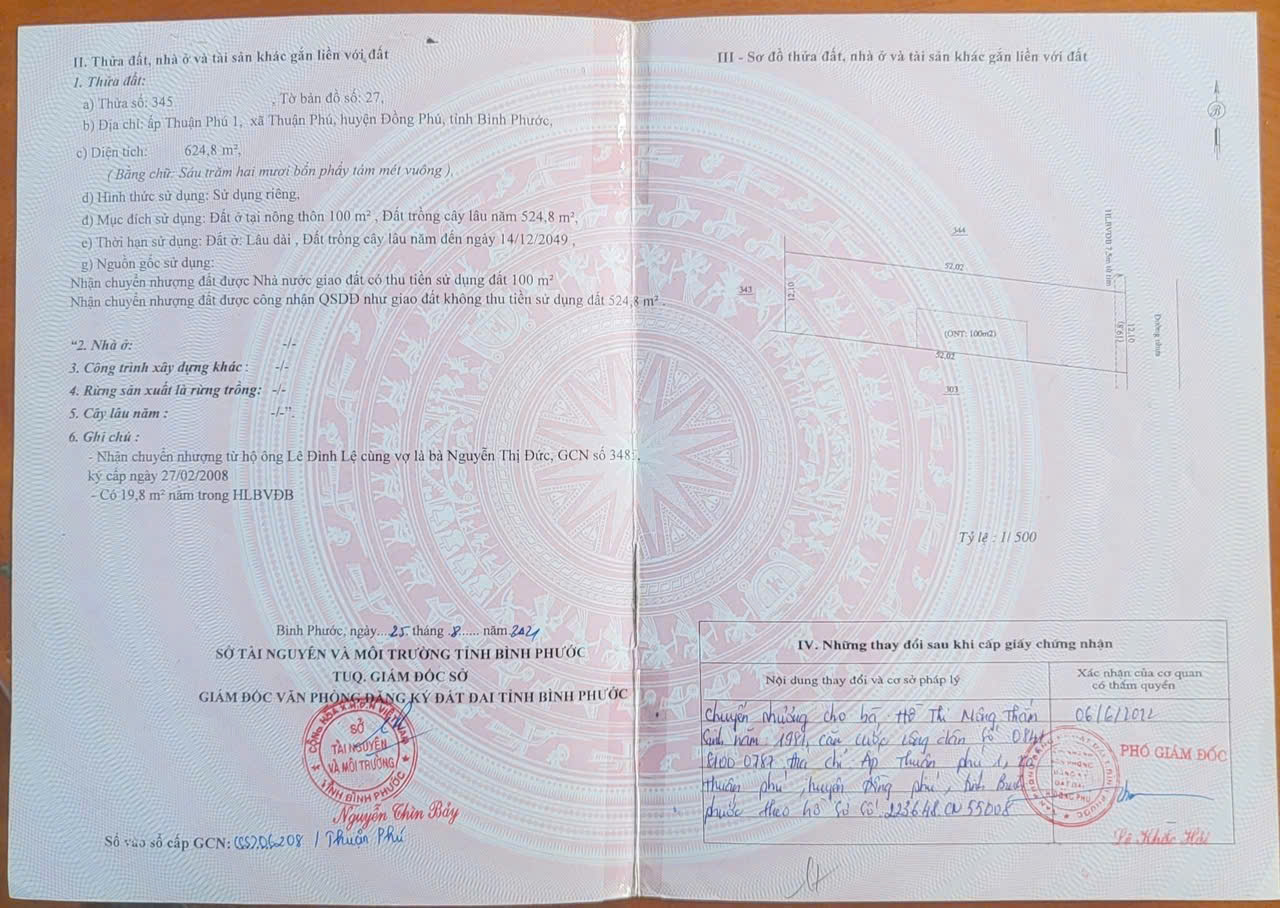 II. Thửa đất, nhà ở và tài sản khác gắn liền với đất
1. Thửa đất:
a) Thửa số: 345 , Tờ bản đồ số: 27,
b) Địa chỉ: ấp Thuận Phú 1, xã Thuận Phú, huyện Đồng Phú, tỉnh Bình Phước,
c) Diện tích: 624,8 m²,
( Bằng chữ: Sáu trăm hai mươi bốn phẩy tám mét vuông ),
d) Hình thức sử dụng: Sử dụng riêng,
đ) Mục đích sử dụng: Đất ở tại nông thôn 100 m² , Đất trồng cây lâu năm 524,8 m²,
e) Thời hạn sử dụng: Đất ở: Lâu dài , Đất trồng cây lâu năm đến ngày 14/12/2049 ,
g) Nguồn gốc sử dụng:
Nhận chuyển nhượng đất được Nhà nước giao đất có thu tiền sử dụng đất 100 m²
Nhận chuyển nhượng đất được công nhận QSDĐ như giao đất không thu tiền sử dụng đất 524,8 m² .
“2. Nhà ở: -/-
3. Công trình xây dựng khác : -/-
4. Rừng sản xuất là rừng trồng: -/-
5. Cây lâu năm : -/-”.
6. Ghi chú :
- Nhận chuyển nhượng từ hộ ông Lê Đình Lệ cùng vợ là bà Nguyễn Thị Đức, GCN số 348
ký cấp ngày 27/02/2008
- Có 19,8 m² nằm trong HLBVĐB
Bình Phước, ngày...25 tháng .8...... năm 2021
SỞ TÀI NGUYÊN VÀ MÔI TRƯỜNG TỈNH BÌNH PHƯỚC
TUQ. GIÁM ĐỐC SỞ
GIÁM ĐỐC VĂN PHÒNG ĐĂNG KÝ ĐẤT ĐAI TỈNH BÌNH PHƯỚC
CỘNG HÒA X.H.C.N VIỆT NAM
SỞ
TÀI NGUYÊN
VÀ MÔI TRƯỜNG
TỈNH BÌNH PHƯỚC
Nguyễn Thìn Bảy
Số vào sổ cấp GCN: CS206208 / Thuận Phú
III - Sơ đồ thửa đất, nhà ở và tài sản khác gắn liền với đất
B
344
HLBVĐB 7,5m từ tim
52,02
343
12,10
(ONT: 100m2)
(19,8)
12,10
Đường nhựa
52,02
303
Tỷ lệ : 1/ 500
IV. Những thay đổi sau khi cấp giấy chứng nhận
Nội dung thay đổi và cơ sở pháp lý
Xác nhận của cơ quan
có thẩm quyền
Chuyển nhượng cho bà Hồ Thị Mộng Thắm
06/6/2022
Sinh năm 1981, căn cước công dân số 0841
8100 0787 địa chỉ Ấp Thuận phú 1, xã
PHÓ GIÁM ĐỐC
Thuận phú, huyện Đồng phú, tỉnh Bình
phước theo hồ sơ số 223648.CN.55008
Lê Khắc Hải